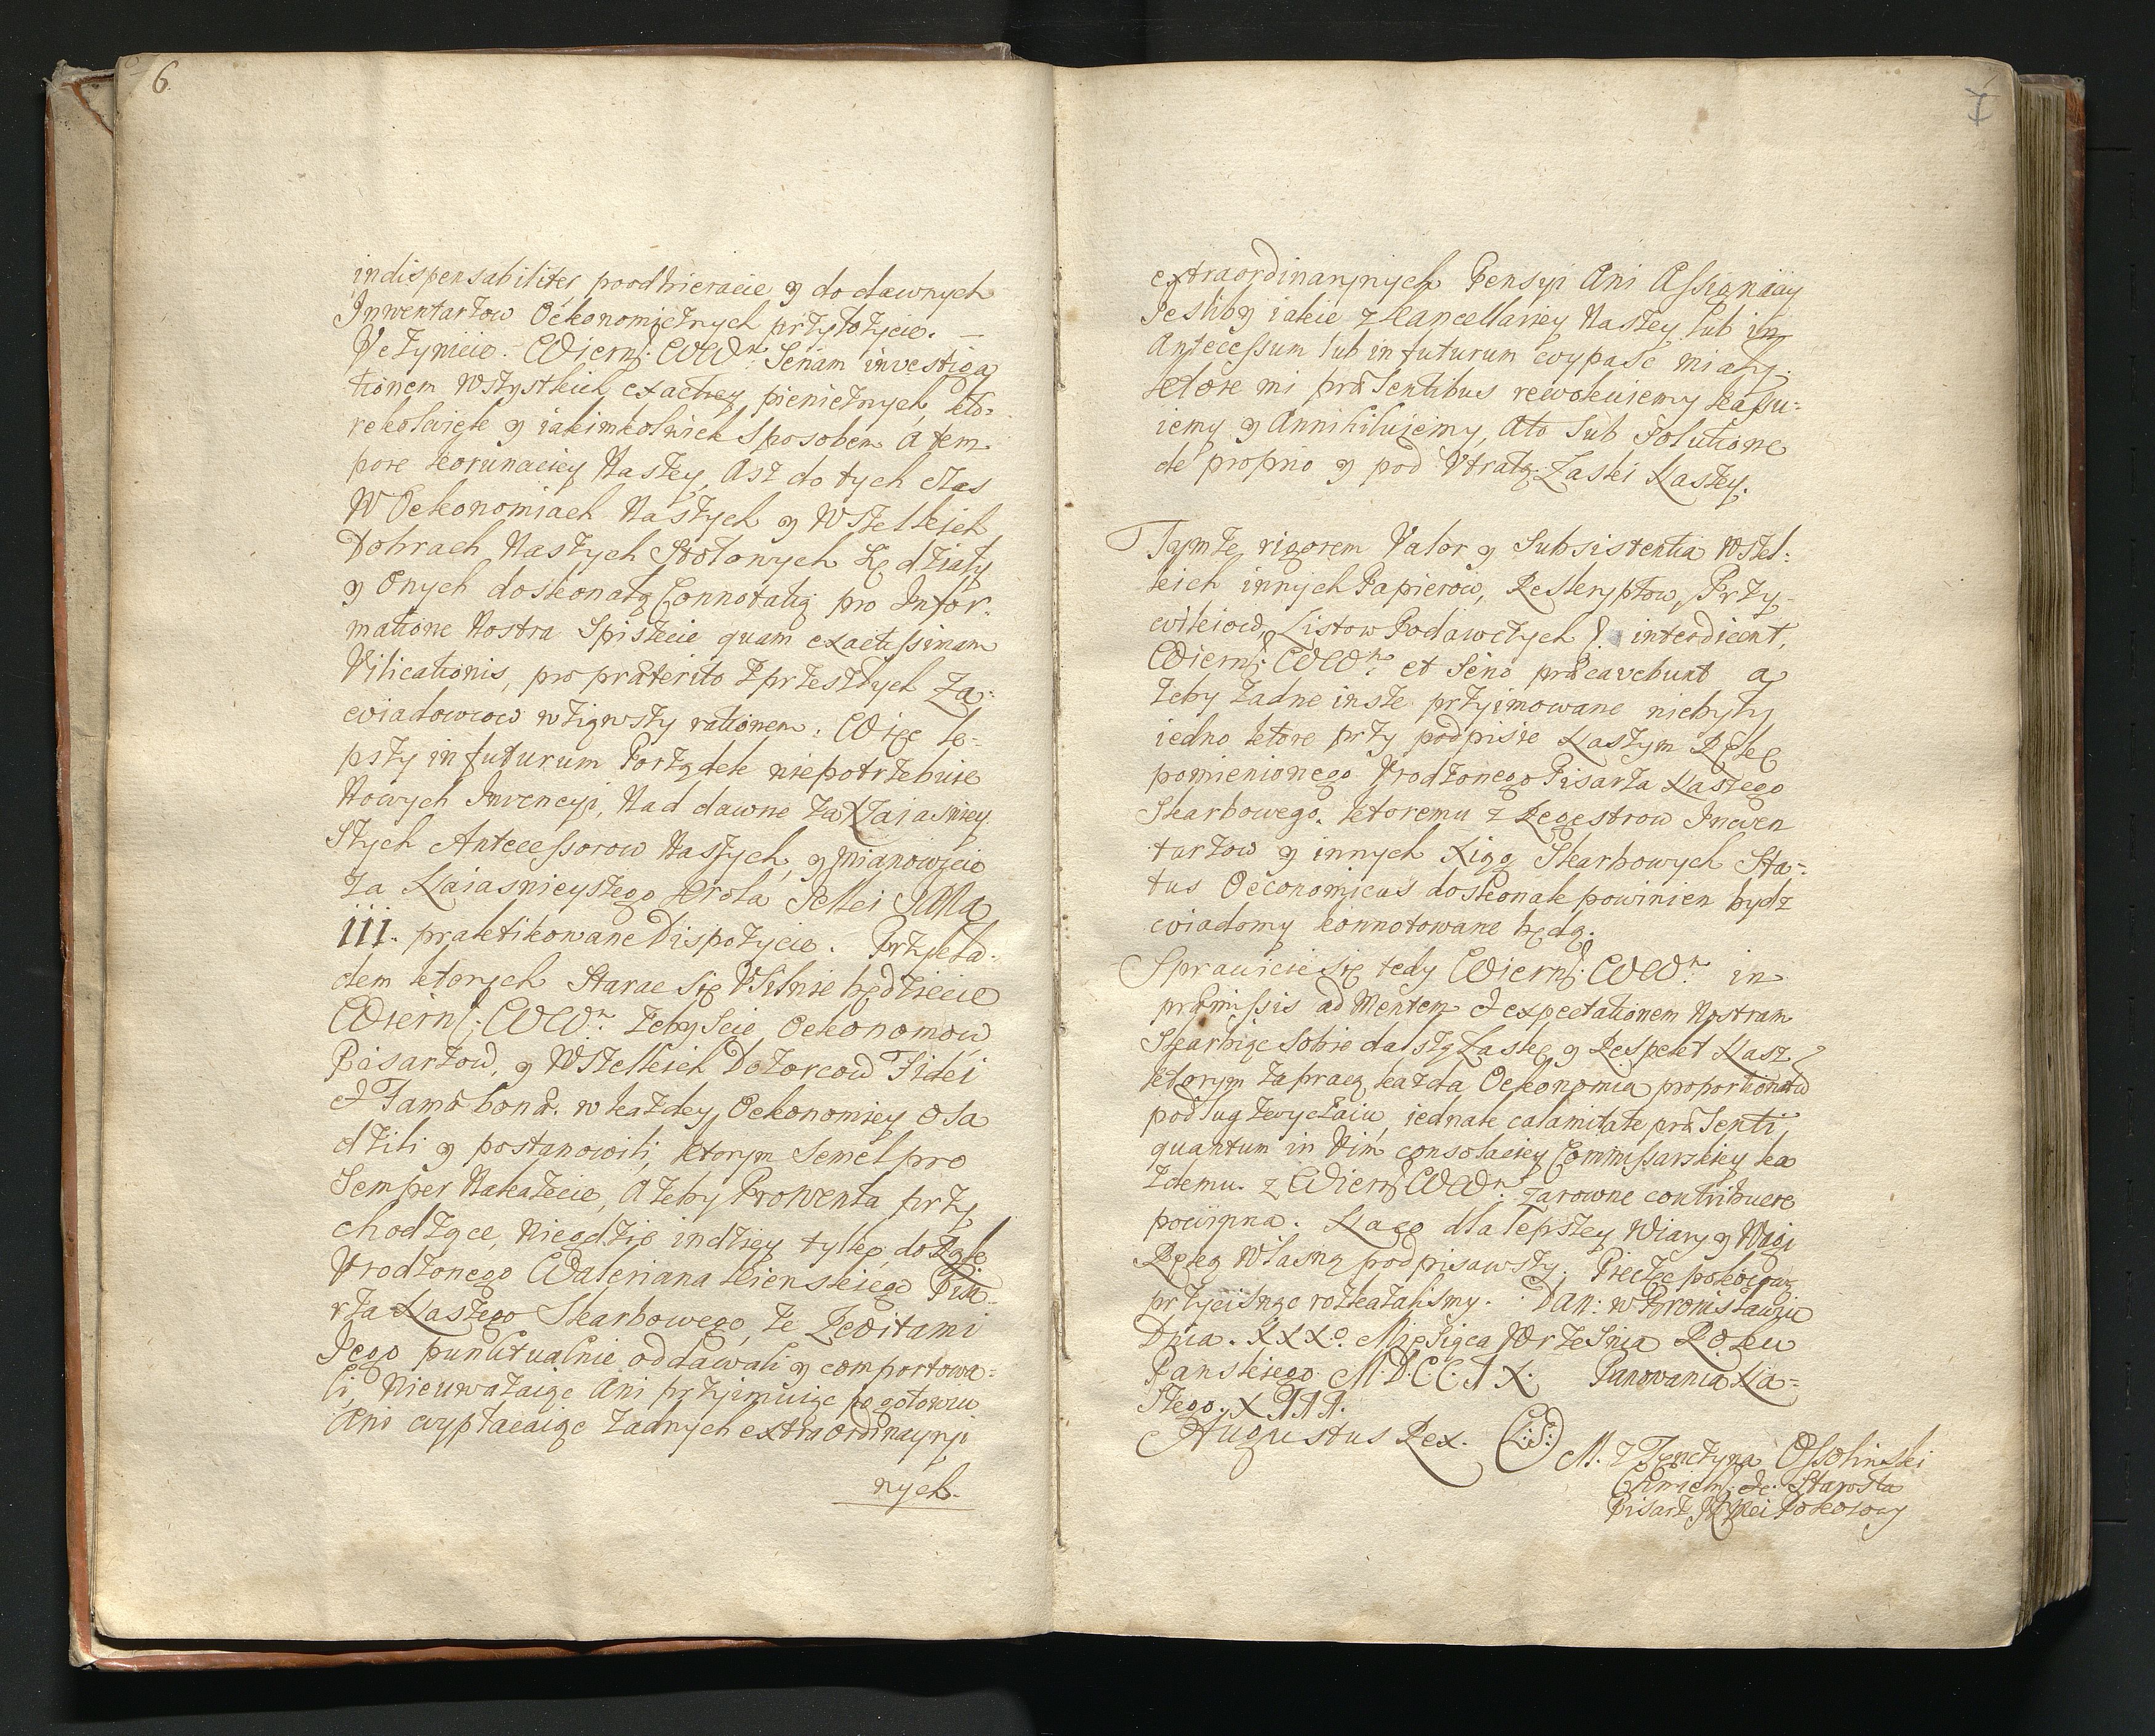 6.
indispensabiliter poodbieracie y do dawnych
Inwentarzow Oekonomicznych przyłożycie. —
Uczynicie Wiern: WWn: Seriam investiga
tionem wszystkich exactiey pienieżnych, kto-
rekolwiek y iakimkolwiek sposobem a tem
pore koronaciey Naszey, Asz do tych czas
W Oekonomiach Naszych y Wszelkich
Dobrach Naszych Stołowych się działy
y onych doskonałą Connotatią pro Infor-
matione Nostra Spiszecie quam exactissimam
Vilicationis, pro praeterito z przeszłych Za-
wiadowcow wziąwszy rationem. Więc le-
pszy in futurum Porządek niepotrzebuie
Nowych Invencyi, Nad dawne za Naiasniey
Szych Antecessorow Naszych, y mianowicie
za Naiasnieyszego Krola Jemci JANA
III. praktikowane Dispozycie. Przykła-
dem ktorych Starac się Usilnie będziecie
Wiern: WWn: Zebyscie Oekonomow
Pisarzow, y Wszelkich Dozorcow Fidei
et Famae bonae. w każdey Oekonomiey osa
dzili y postanowili, ktorym Semel pro
Semper Nakażecie, Ażeby Prowenta przy
chodzące, Niegdzie indziey tylko do Rąk
Urodzonego Waleriana Kienskiego Pisa-
rza Naszego Skarbowego, ze Kwitami
Jego punktualnie oddawali y comportowa-
li, Nieuważaiąc Ani przyimuiąc po gotowiu
Ani wypłacaiąc żadnych extraordinaryi
nych.
7
extraordinaryinych Pensyi Ani Assignaciy
Jesliby iakie z Kancellariey Naszey lub in
Antecessum lub in futurum wypasć miały.
ktore mi praesentibus rewokuiemy kassu-
iemy y Annihiluiemy, Ato sub solutione
de proprio y pod Utratą Łaski Naszey.
Tąmże rigorem Valor y Subsistentia Wszel-
kich innych Papierow, Reskryptow, Przy-
wileiow, Listow Podawczych interdicent,
Wiern: WWn: et serio praecavebunt a
żeby żadne insze przyimowane niebyły
iedno ktore przy podpisie Naszym Rękę
pomienionego Urodzonego Pisarza Naszego
Skarbowego. ktoremu z Regestrow Inwen
tarzow y innych Xiąg Skarbowych Sta-
tus Oeconomicus doskonale powinien bydz
wiadomy konnotowane będą.
Sprawicie się tedy Wiern: WWn: in
praemissis ad Mentem et expectationem Nostram
Skarbiąc sobie dalszą Łaskę y Respekt Nasz
ktorym za pracą każda Oekonomia proportionatu
podług zwyczaiu, iednak calamitate praesenti,
quantum in Vim consolaciey Commissarskiey ka
żdemu z Wiern: WWn: zarowne contribuere
powinna. Naco dla lepszey Wiary y Wagi
Ręką Własną podpisawszy. Pieczęć pokoiową
przycisnąc rozkazalismy. Dan: w Bronisławiu
Dnia. XXXo. Miesiąca Wrzesnia Roku
Panskiego M.D.C.C.IX. Panowania Na-
szego. XIII.
Augustus Rex. (L:S:)
M. z Tęnczyna Ossolinski
Chmiel: etc. Starosta
Pisarz JKMci Pokoiowy